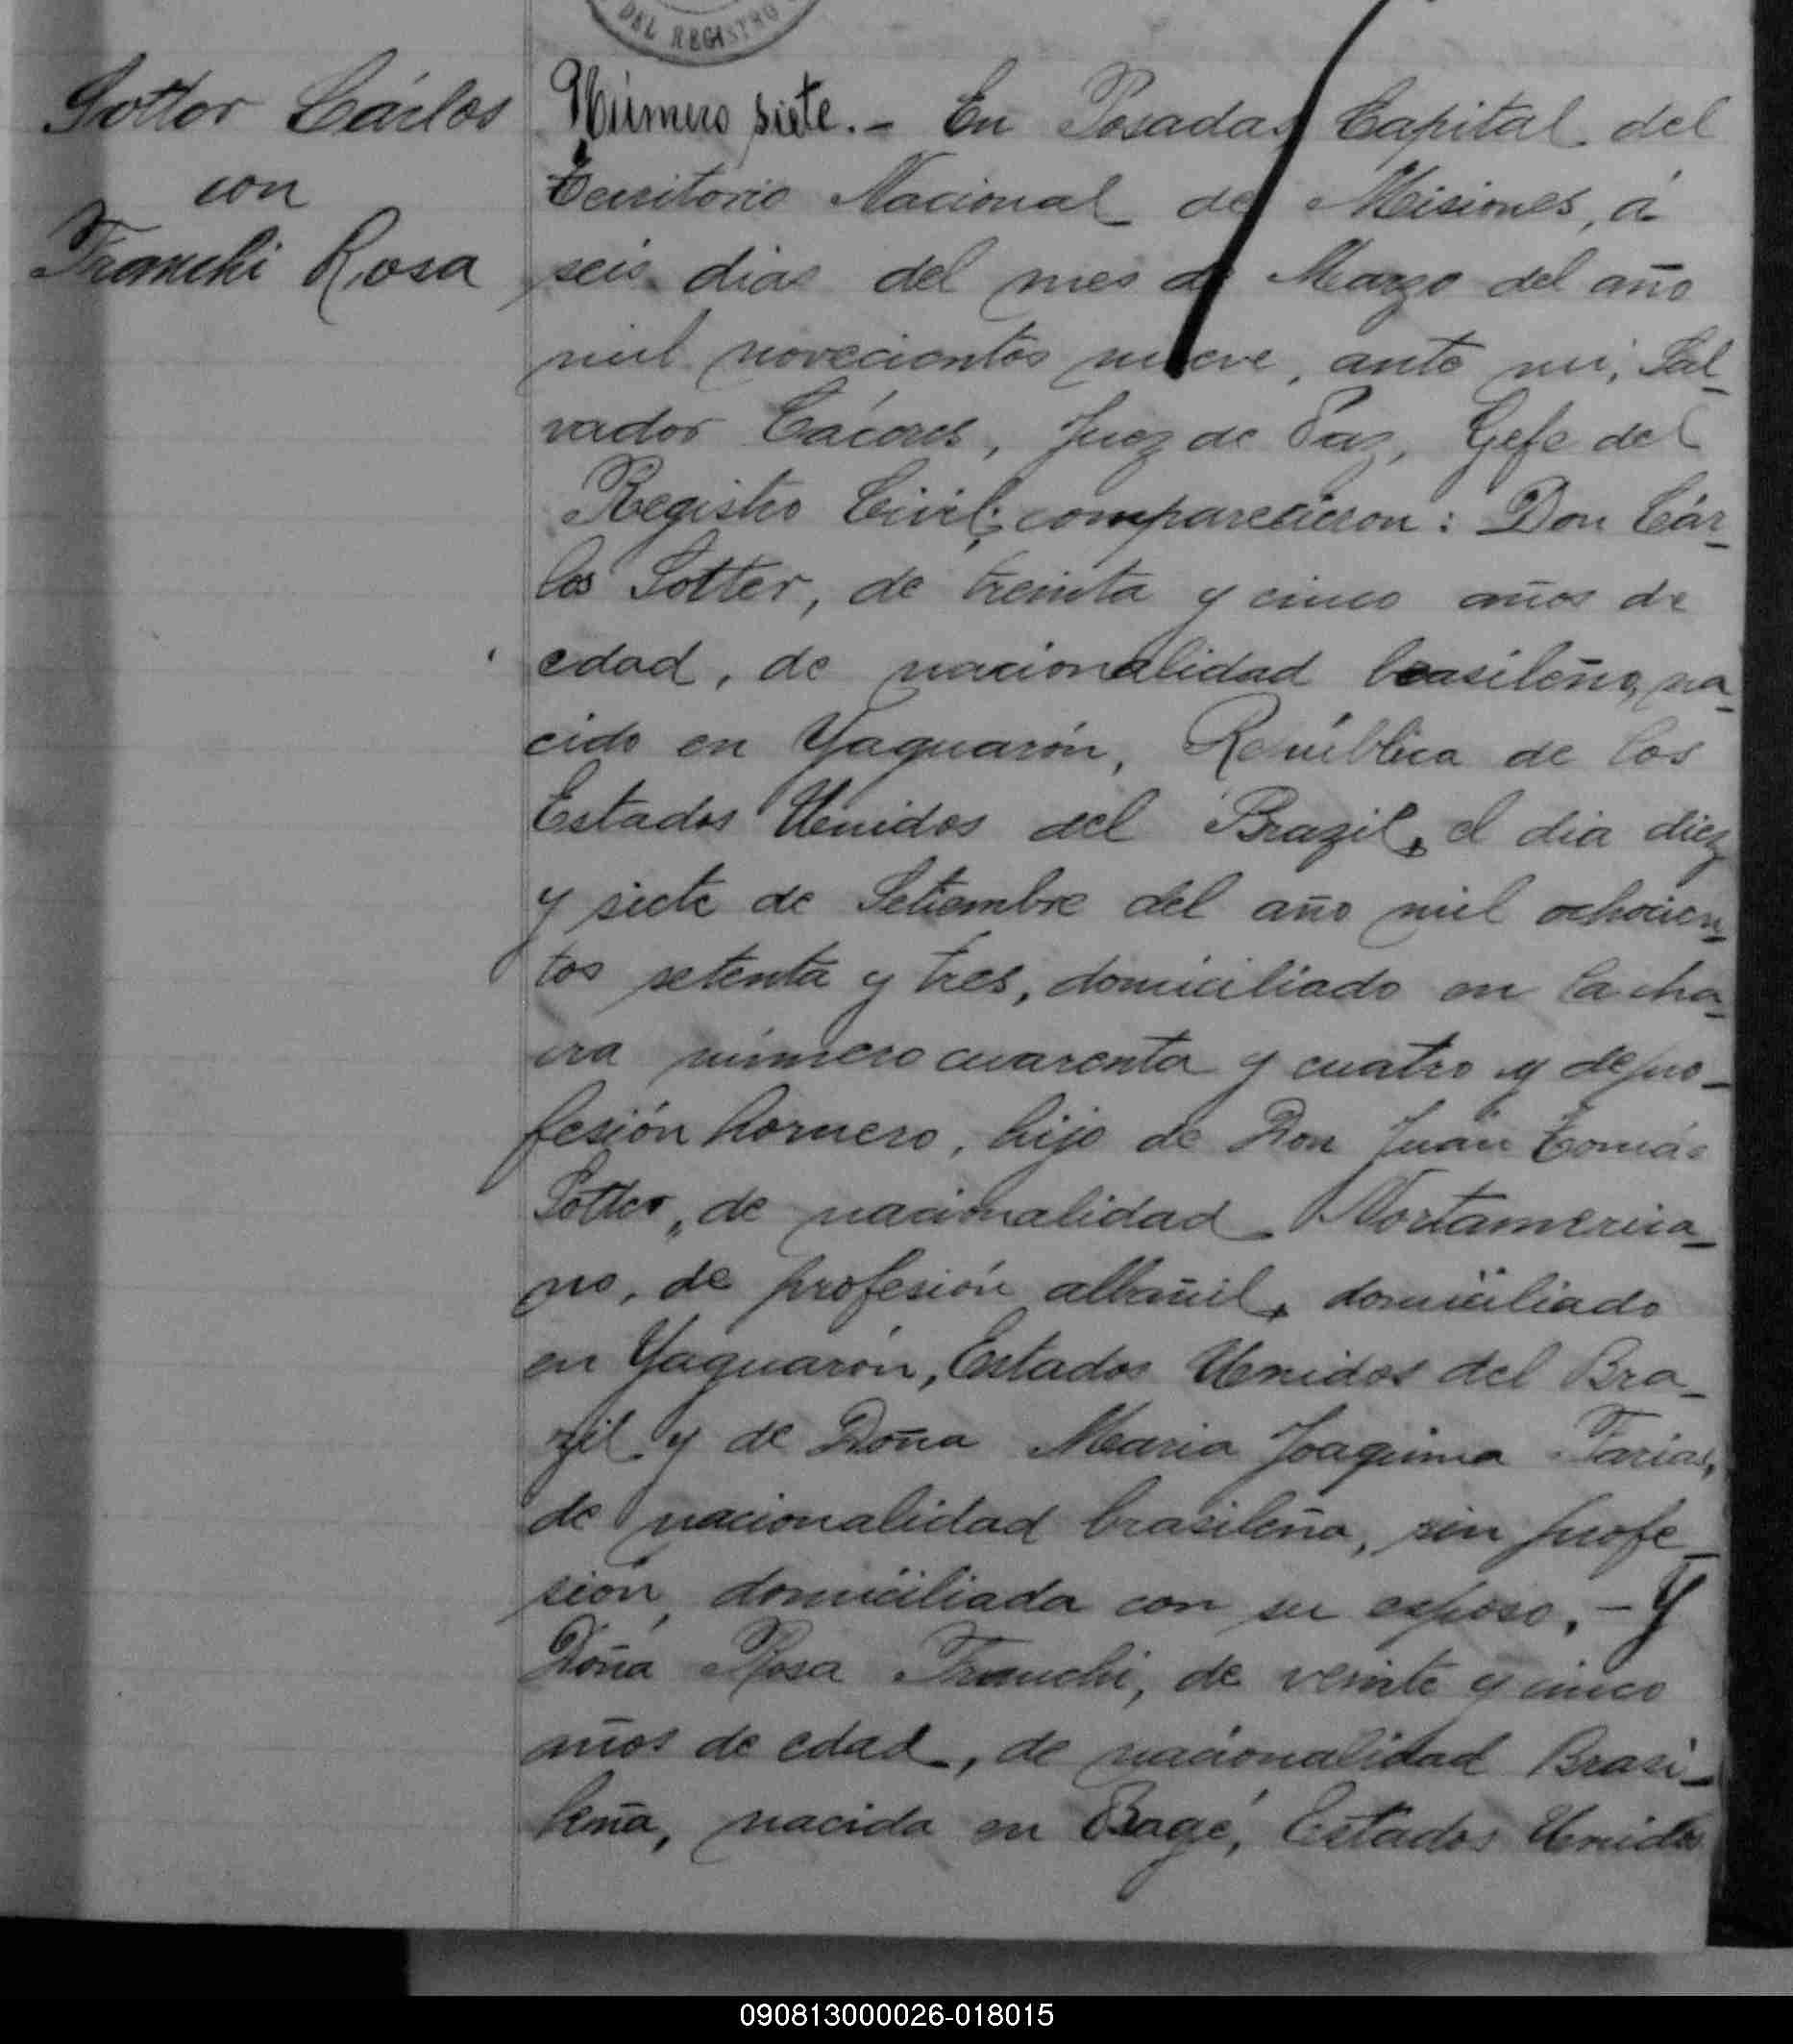 DEL REGISTRO
Sotter Cárlos
con
Franchi Rosa
Número siete.- En Posadas, Capital del
Territorio Nacional de Misiones, á
seis dias del mes de Marzo del año
mil novecientos nueve, ante mi, Sal-
vador Cáceres, Juez de Paz, Gefe del
Registro Civil; comparecieron: Don Cár-
los Sotter, de treinta y cinco años de
edad, de nacionalidad brasileño, na-
cido en Yaguarón, República de los
Estados Unidos del Brazil, el dia diez
y siete de Setiembre del año mil ochocien-
tos setenta y tres, domiciliado en la cha-
cra número cuarenta y cuatro y de pro-
fesión hornero, hijo de Don Juan Tomás
Sotter, de nacionalidad Nortamerica-
no, de profesión albañil, domiciliado
en Yaguarón, Estados Unidos del Bra-
zil y de Doña Maria Joaquina Farias,
de nacionalidad brasileña, sin profe-
sión, domiciliada con su esposo. - Y
Doña Rosa Franchi, de veinte y cinco
años de edad, de nacionalidad Brasi-
leña, nacida en Bagé, Estados Unidos
090813000026-018015